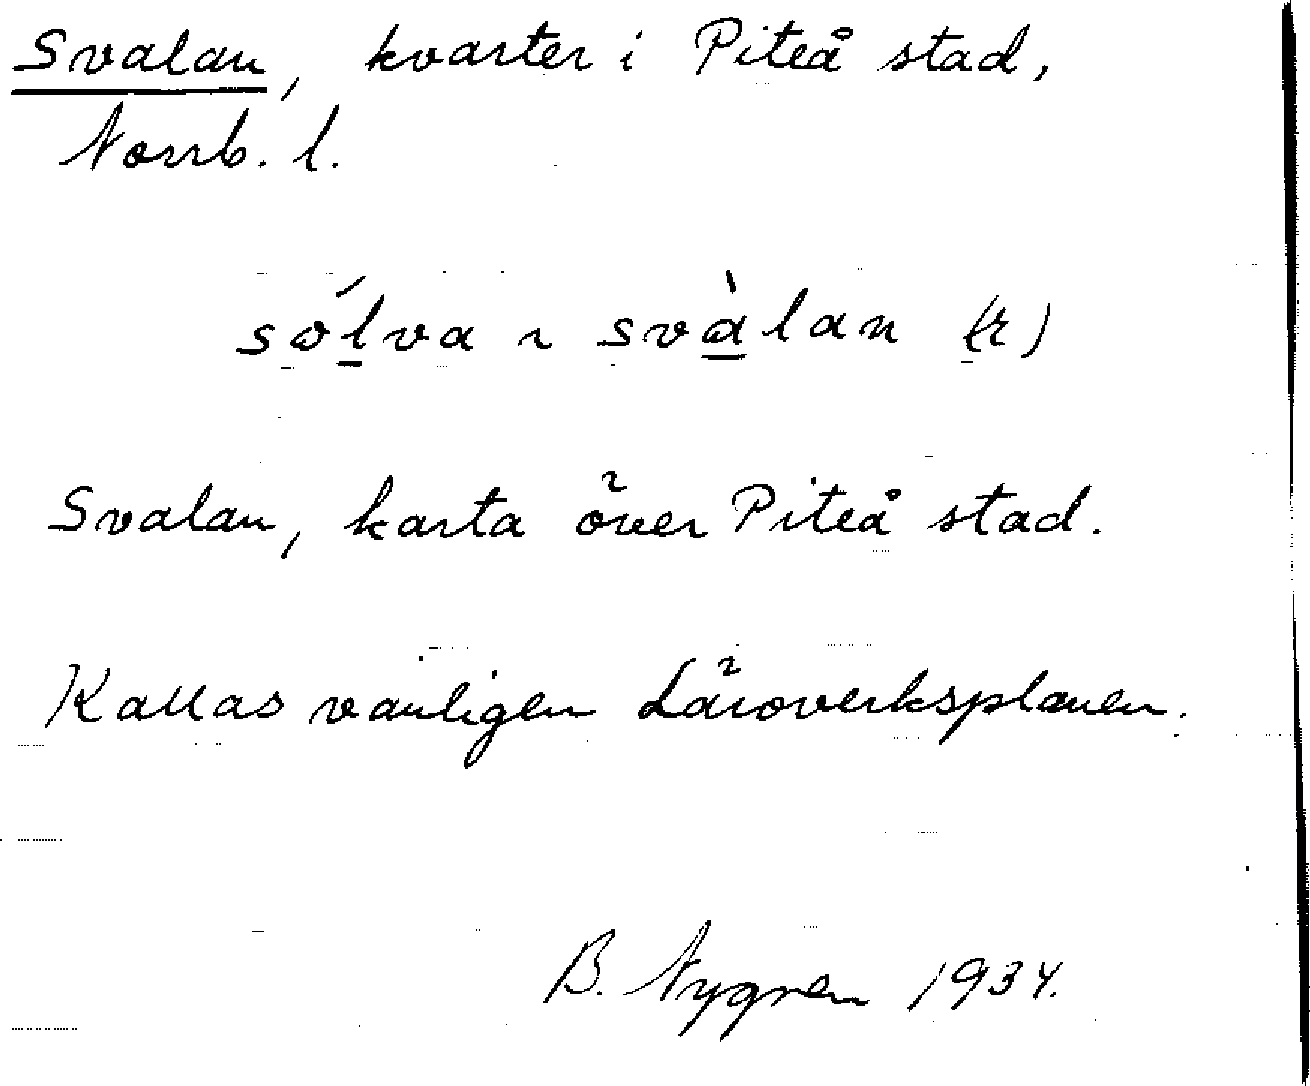 Svalan, kvarter i Piteå stad,
Norrb. l.
sólva ~ svàlan (r)
Svalan, karta över Piteå stad.
Kallas vanligen Läroverksplanen.
B. Nygren 1934.